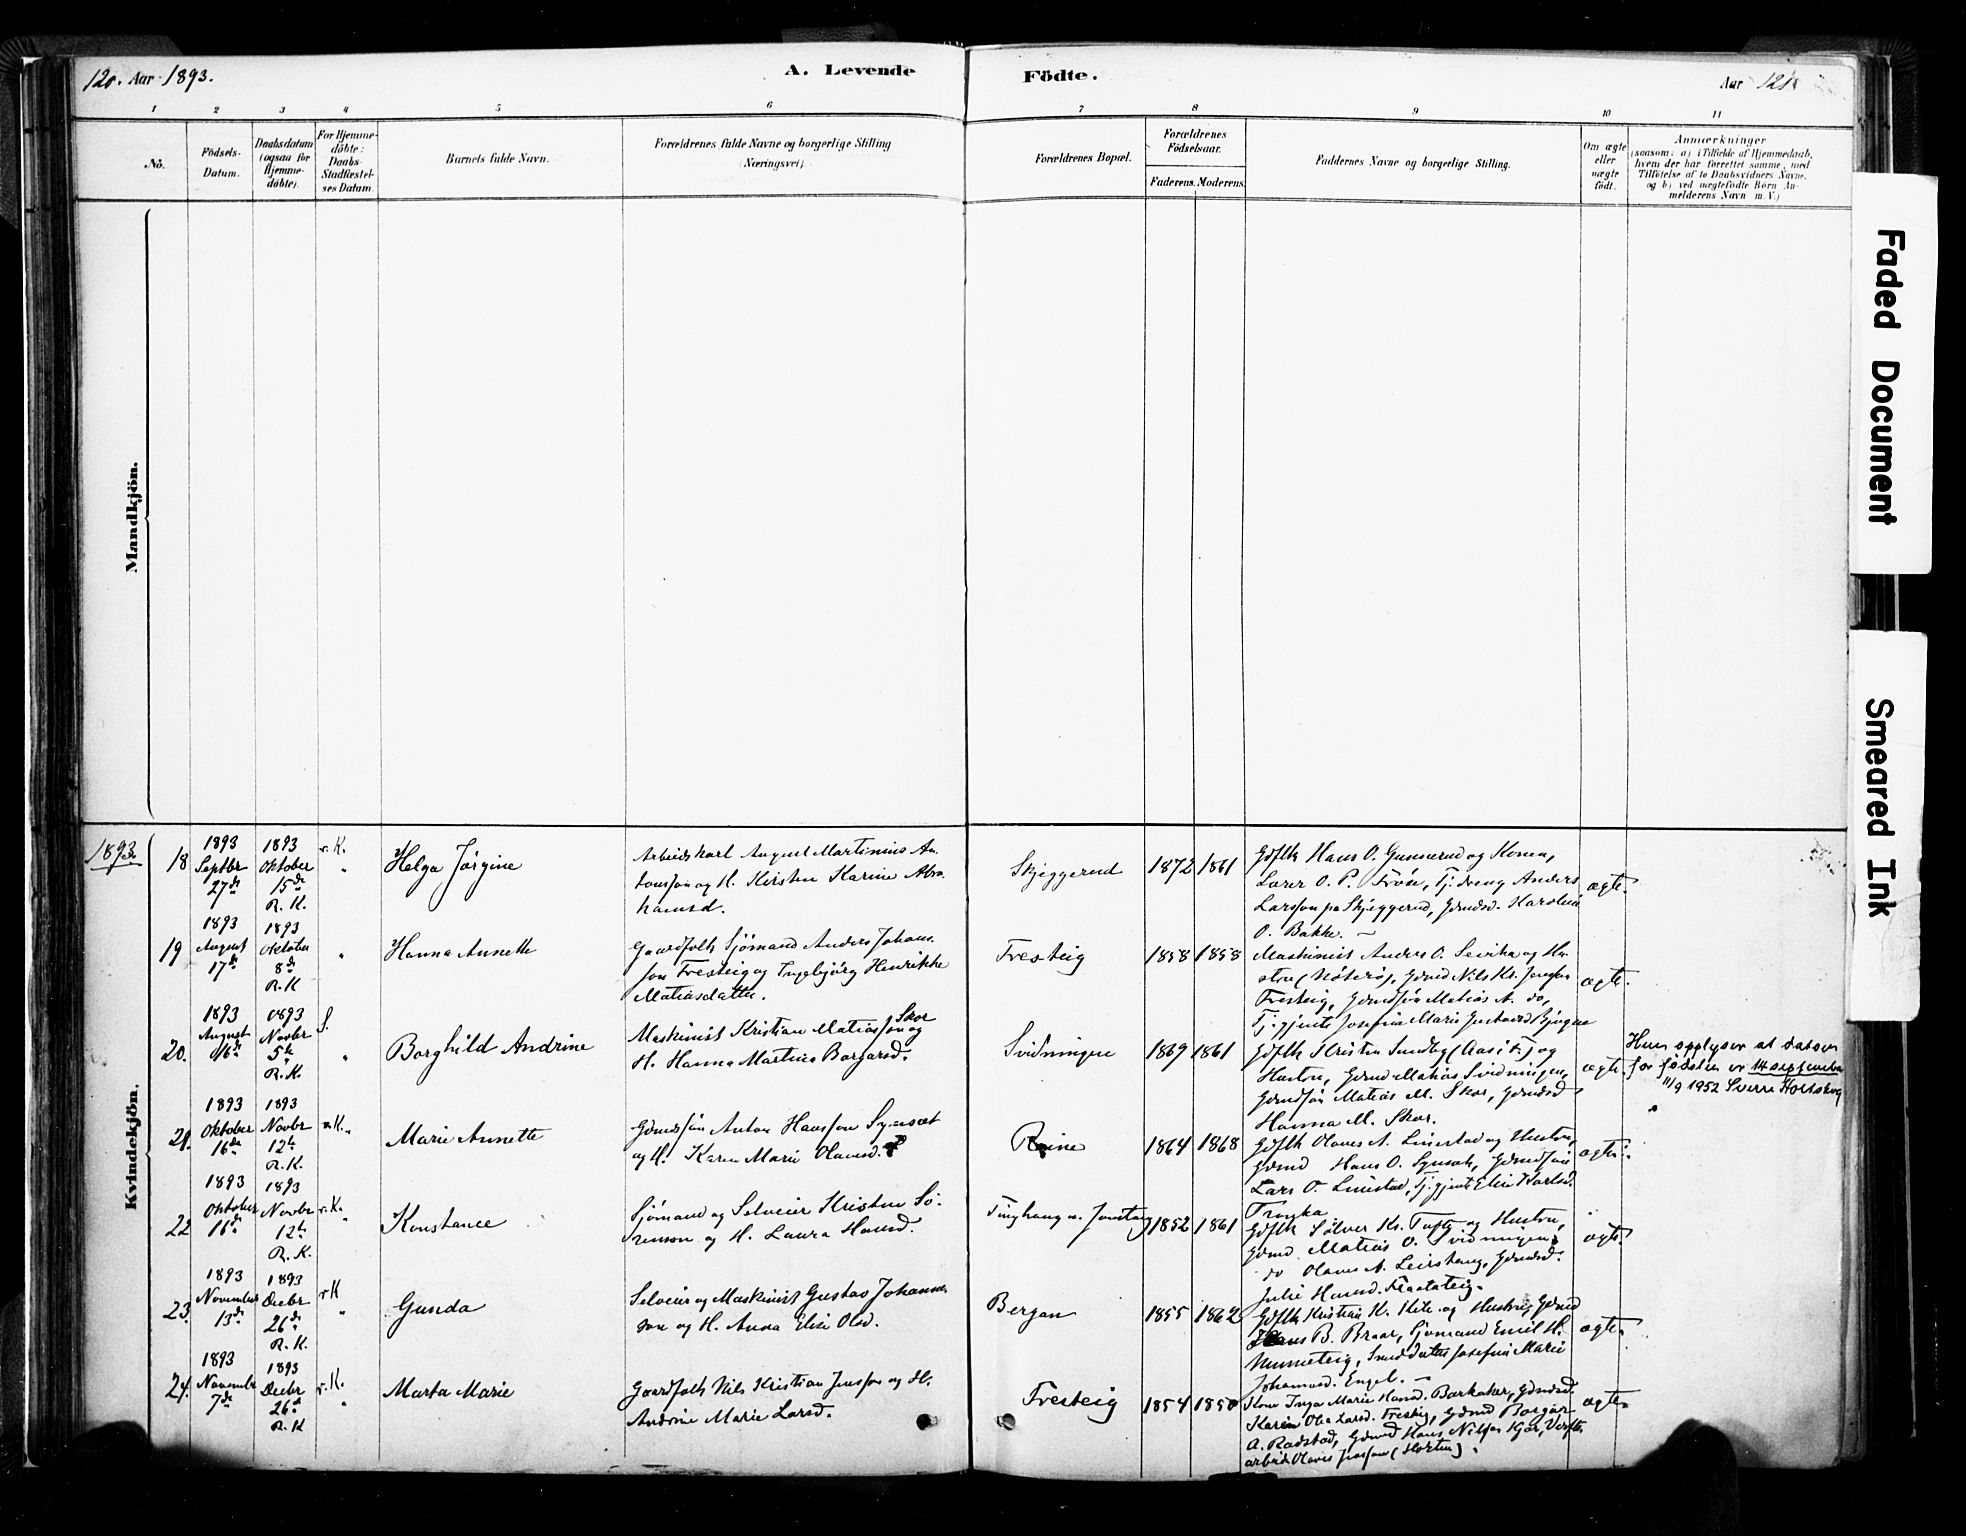 120. Aar 1893.
A. Levende
Födte.
Aar 121
1 2 3 4 5 6 7 8 9 10 11
No.
Födsels-
Datum.
Daabsdatum
(ogsaa for
Hjemme-
döbte).
For Hjemme-
döbte:
Daabs-
Stadfæstel-
ses Datum.
Barnets fulde Navn.
Forældrenes fulde Navne og borgerlige Stilling
(Næringsvei).
Forældrenes Bopæl.
Forældrenes
Födselsaar.
Faderens. Moderens.
Faddernes Navne og borgerlige Stilling.
Om ægte
eller
uægte
födt.
Anmærkninger
(saasom: a) i Tilfælde af Hjemmedaab,
hvem der har forrettet samme, med
Tilföielse af to Daabsvidners Navne.
og b) ved uægtefödte Börn An-
melderens Navn m. V.)
Mandkjön.
Kvindekjön.
1893
18
1893
Septbr
27de
1893
Oktober
15de
R. K.
v. K.
Helga Jörgine
Arbeidskarl August Martinius An-
tonsson og H. Kirsten Karine Abra-
hamsd.
Skjeggerud
1872 1861
Gdflk Hans O. Gunnerud og Kone,
Lærer O. P. Fröse, Tj. dreng Anders
Larsson pa Skjeggerud, Gdmdsd. Karoline
O. Bakke.
ægte.
19
1893
August
17de
1893
Oktober
8de
R. K
Hanna Annette
Gaardfolk Sjömand Anders Johans-
son Fresteig og Ingebjörg Henrikke
Matiasdatter.
Fresteig
1858 1858
Maskinist Anders O. Sevika og Hu-
stru (Nöterö), Gdmd Nils Kr. Jensson
Fresteig, Gdmdsön Matias A. do,
Tj. gjente Josefine Marie
ægte.
20.
1893
August
16de
1893
Novbr
5te
R. K.
S.
Borghild Andrine
Maskinist Kristian Matiasson Skor og
H. Hanna Martine Borgersd.
Svidningen
1869 1861
Gdflk Kristen Sundby (Aas i F.) og
Hustru, Gdmd Matias Svidningen,
Gdmdsön Matias M. Skor, Gdmdsd
Hanna M. Skor.
ægte.
Hun opplyser at datoen
for födselen er 14 september
11/9 1952 Sverre Holtskog
21.
1893
Oktober
16de
1893
Novbr
12te
R. K.
v. K.
Marie Annette
Gdmdsön Anton Hansson Synsæt
og H. Karen Marie Olausd.
Reine
1864 1868
Gdflk Olaves A. Linnestad og Hustru,
Gdmd Hans O. Synsæt, Gdmdsön
Lars O. Linnestad, Tj. gjente Elise Karlsd.
ægte.
22
1893
Oktober
16de
1893
Novbr
12te
R. K.
v. K.
Konstance
Sjömand og Selveier Kristen Sö-
renson og H. Laura Hansd.
1852 1861
Gdflk Sölver Kr. Tufte og Hustru,
Gdmd Matias O. Svidningen,
do Olaves A. Leirstang, Gdmdsd.
Julie Hansd.
ægte.
23.
1893
November
13de
1893
Decbr
26de
R. K.
v K
Gunda
Selveier og Maskinist Gustav Johannes-
son og H. Anna Elise Olsd.
Bergan
1855 1862
Gdflk Kristian K. Hite og Hustru, Gdmd
Hans B. Braar, Sjömand Emil H.
Unneteig, Smeddatter Josefine Marie
Johannesd. Engel.
ægte.
24.
1893
Novembr
7de
1893
Decbr
26de
R. K
v. K.
Marta Marie
Gaardfolk Nils Kristian Jensson og H.
Andrine Marie Larsd.
Fresteig
1854 1850
Kone Inga Marie Hansd. Barkaker, Gdmdsd.
Karen Olea Larsd. Fresteig, Gdmd Borgar
A. Rodstad, Gdmd Hans Nilsson Kjær, Verfts-
arbeid. Olaves Jensson (Horten).
ægte.
Faded Document
Smeared Ink